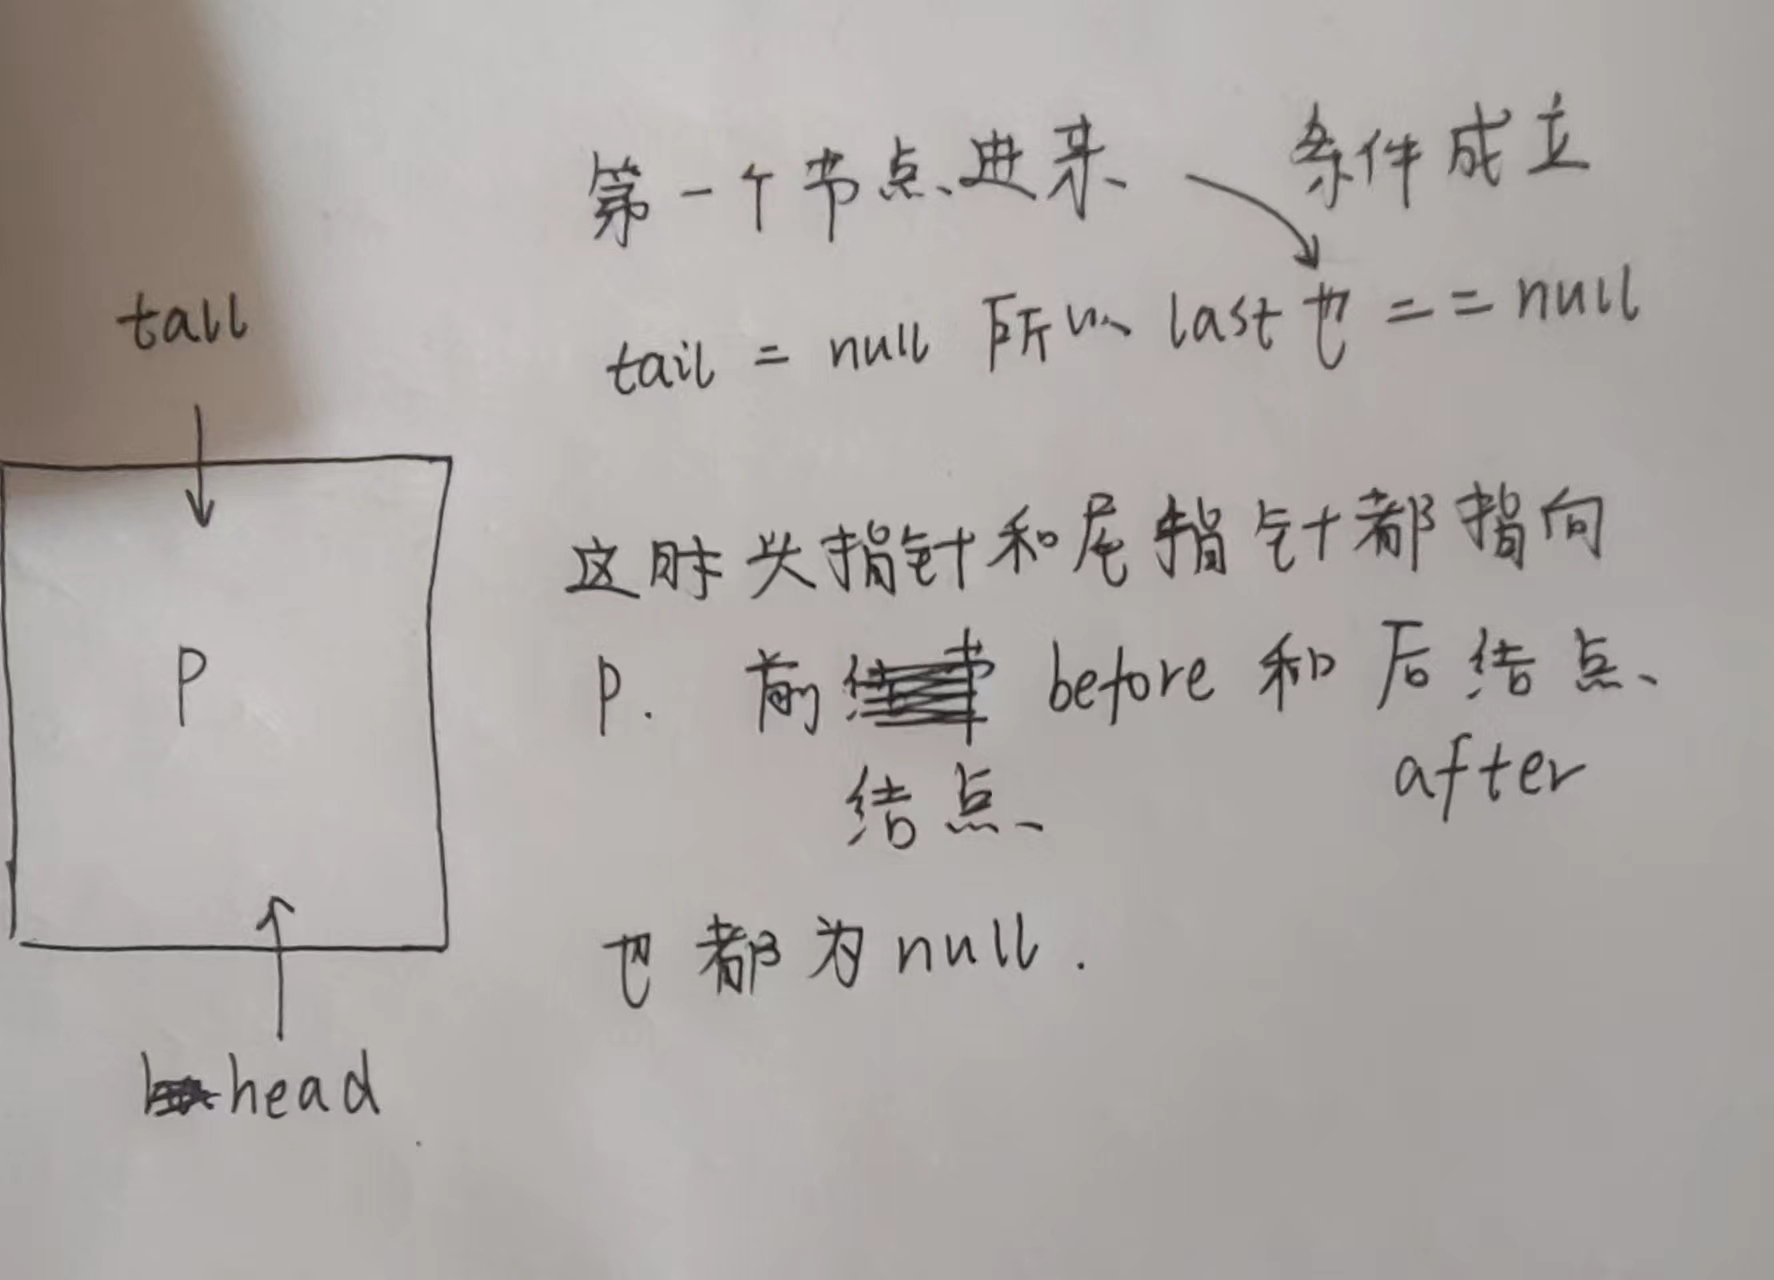 第一个节点进来 条件成立
tail = null 所以 last也 == null
tall
这时头指针和尾指针都指向
P
P. 前 before 和 后结点
结点 after
也都为null.
head